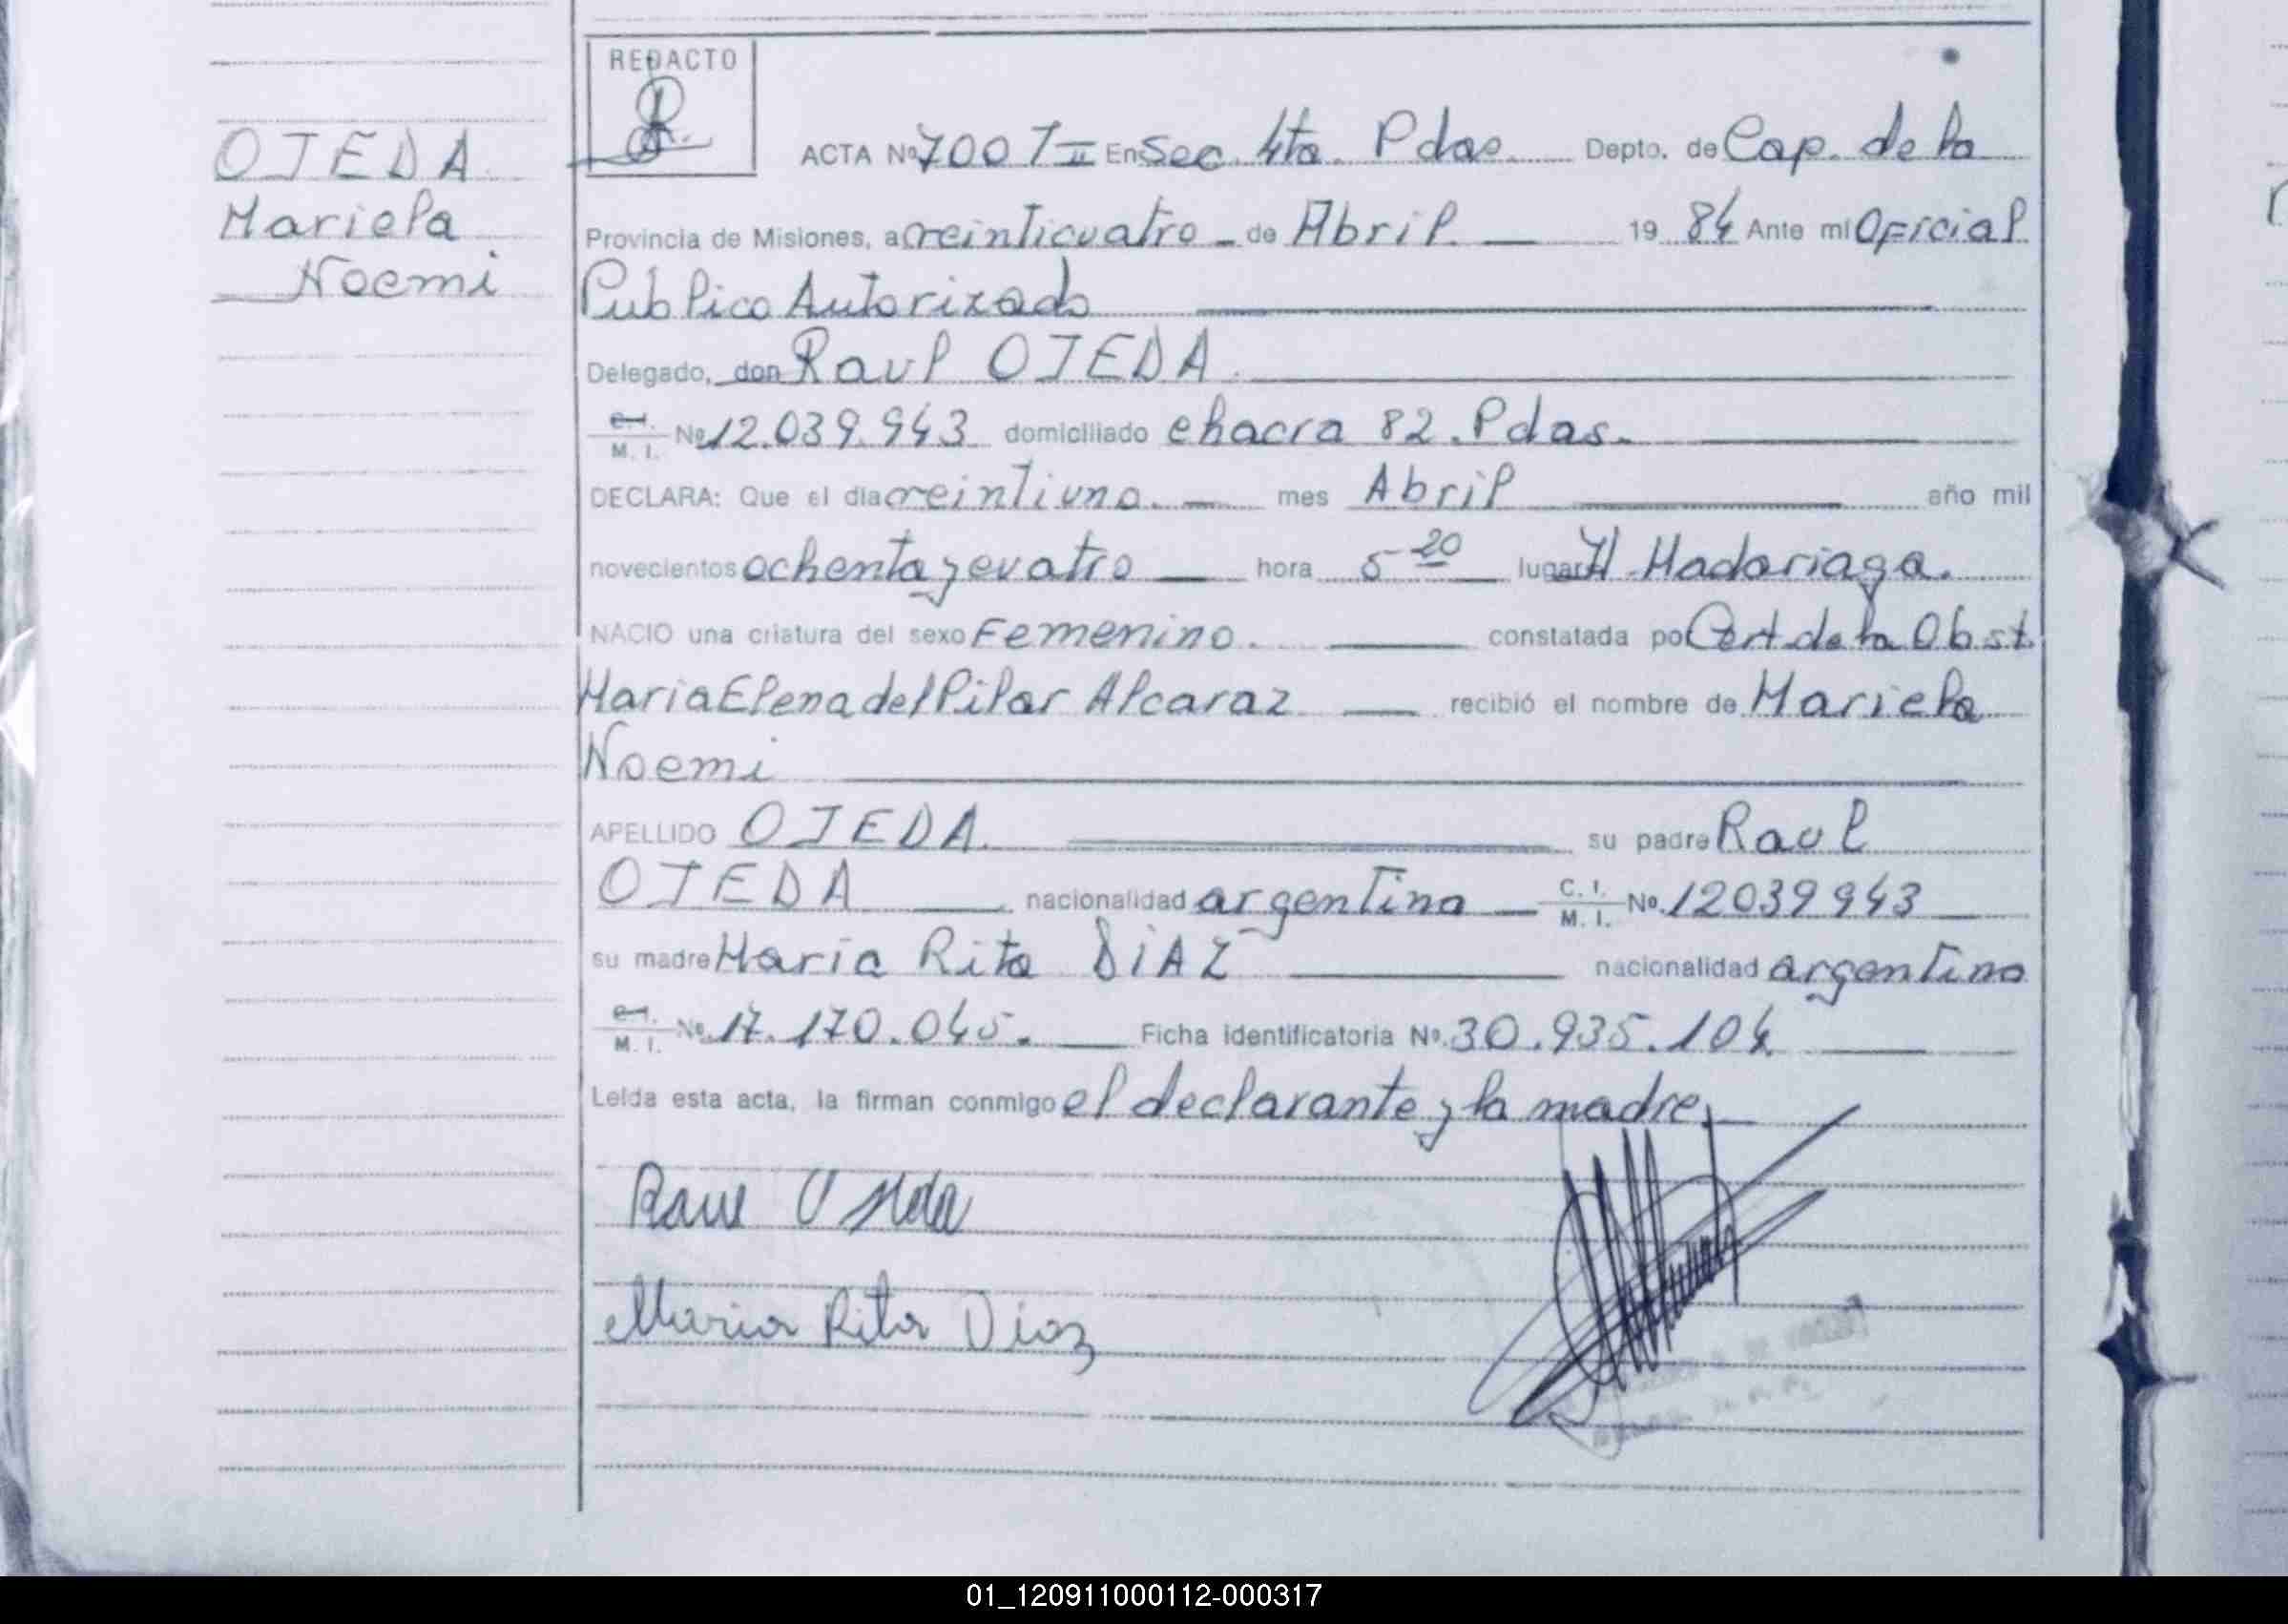 REDACTO
OJEDA
Mariela
Noemi
ACTA Nº 700 T II En Sec. 4ta. Pdas. Depto. de Cap. de la
Provincia de Misiones, a veinticuatro de Abril 19 84 Ante mi Oficial
Publico Autorizado
Delegado, don Raul OJEDA
C.I. M.I. Nº 12.039.943 domiciliado chacra 82. Pdas.
DECLARA: Que el día veintiuno mes Abril año mil
novecientos ochenta y cuatro hora 5 20 lugar H. Madariaga.
NACIO una criatura del sexo Femenino. constatada po Cert. de la Obst.
Maria Elena del Pilar Alcaraz recibió el nombre de Mariela
Noemi
APELLIDO OJEDA. su padre Raul
OJEDA nacionalidad argentina C.I. M.I. Nº. 12039943
su madre Maria Rita DIAZ nacionalidad argentina
C.I. M.I. Nº. 17.170.045. Ficha identificatoria Nº. 30.935.104
Leída esta acta, la firman conmigo el declarante y la madre,
Raul Ojeda
Maria Rita Diaz
01_120911000112-000317